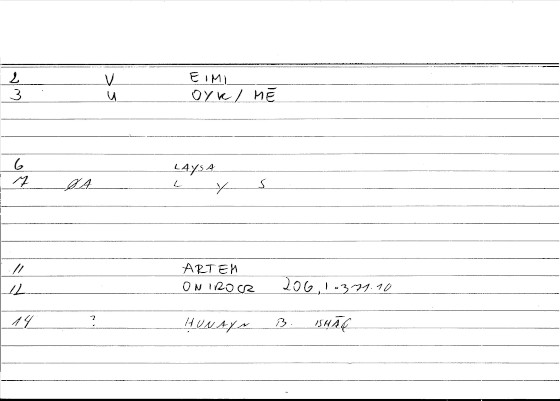 2 V EIMI
3 U OYK / MĒ
6 LAYSA
7 ØA L Y S
11 ARTEM
12 ONIROCR 206,1-371.10
14 ? ḤUNAYN B. ISḤĀQ